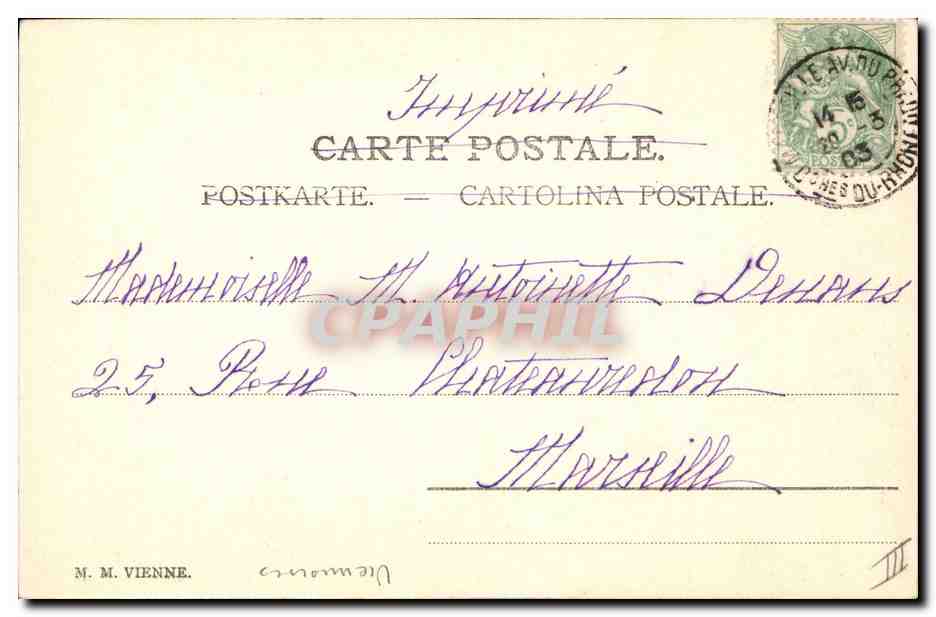 Imprimé
CARTE POSTALE.
POSTKARTE. — CARTOLINA POSTALE.
LLE AV. DU PRADO
14 15
20 - 3
03
BCHES DU-RHONE
5c
POSTES
Mademoiselle M. Antoinette Denans
CPAPHIL
25, Rue Chateauredon
Marseille
M. M. VIENNE.
Viennoises
III